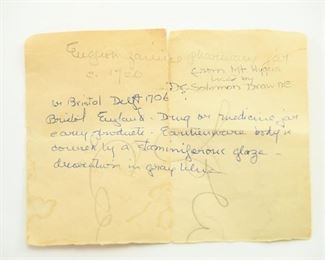 English pharmacy jar
c. 1700
from Mt Hygeia
used by
Dr Solomon Drowne
or Bristol Delft 1706
Bristol England. Drug or medicine jar
early products. Earthenware body is
covered by a stanniferous glaze -
decoration in gray blue